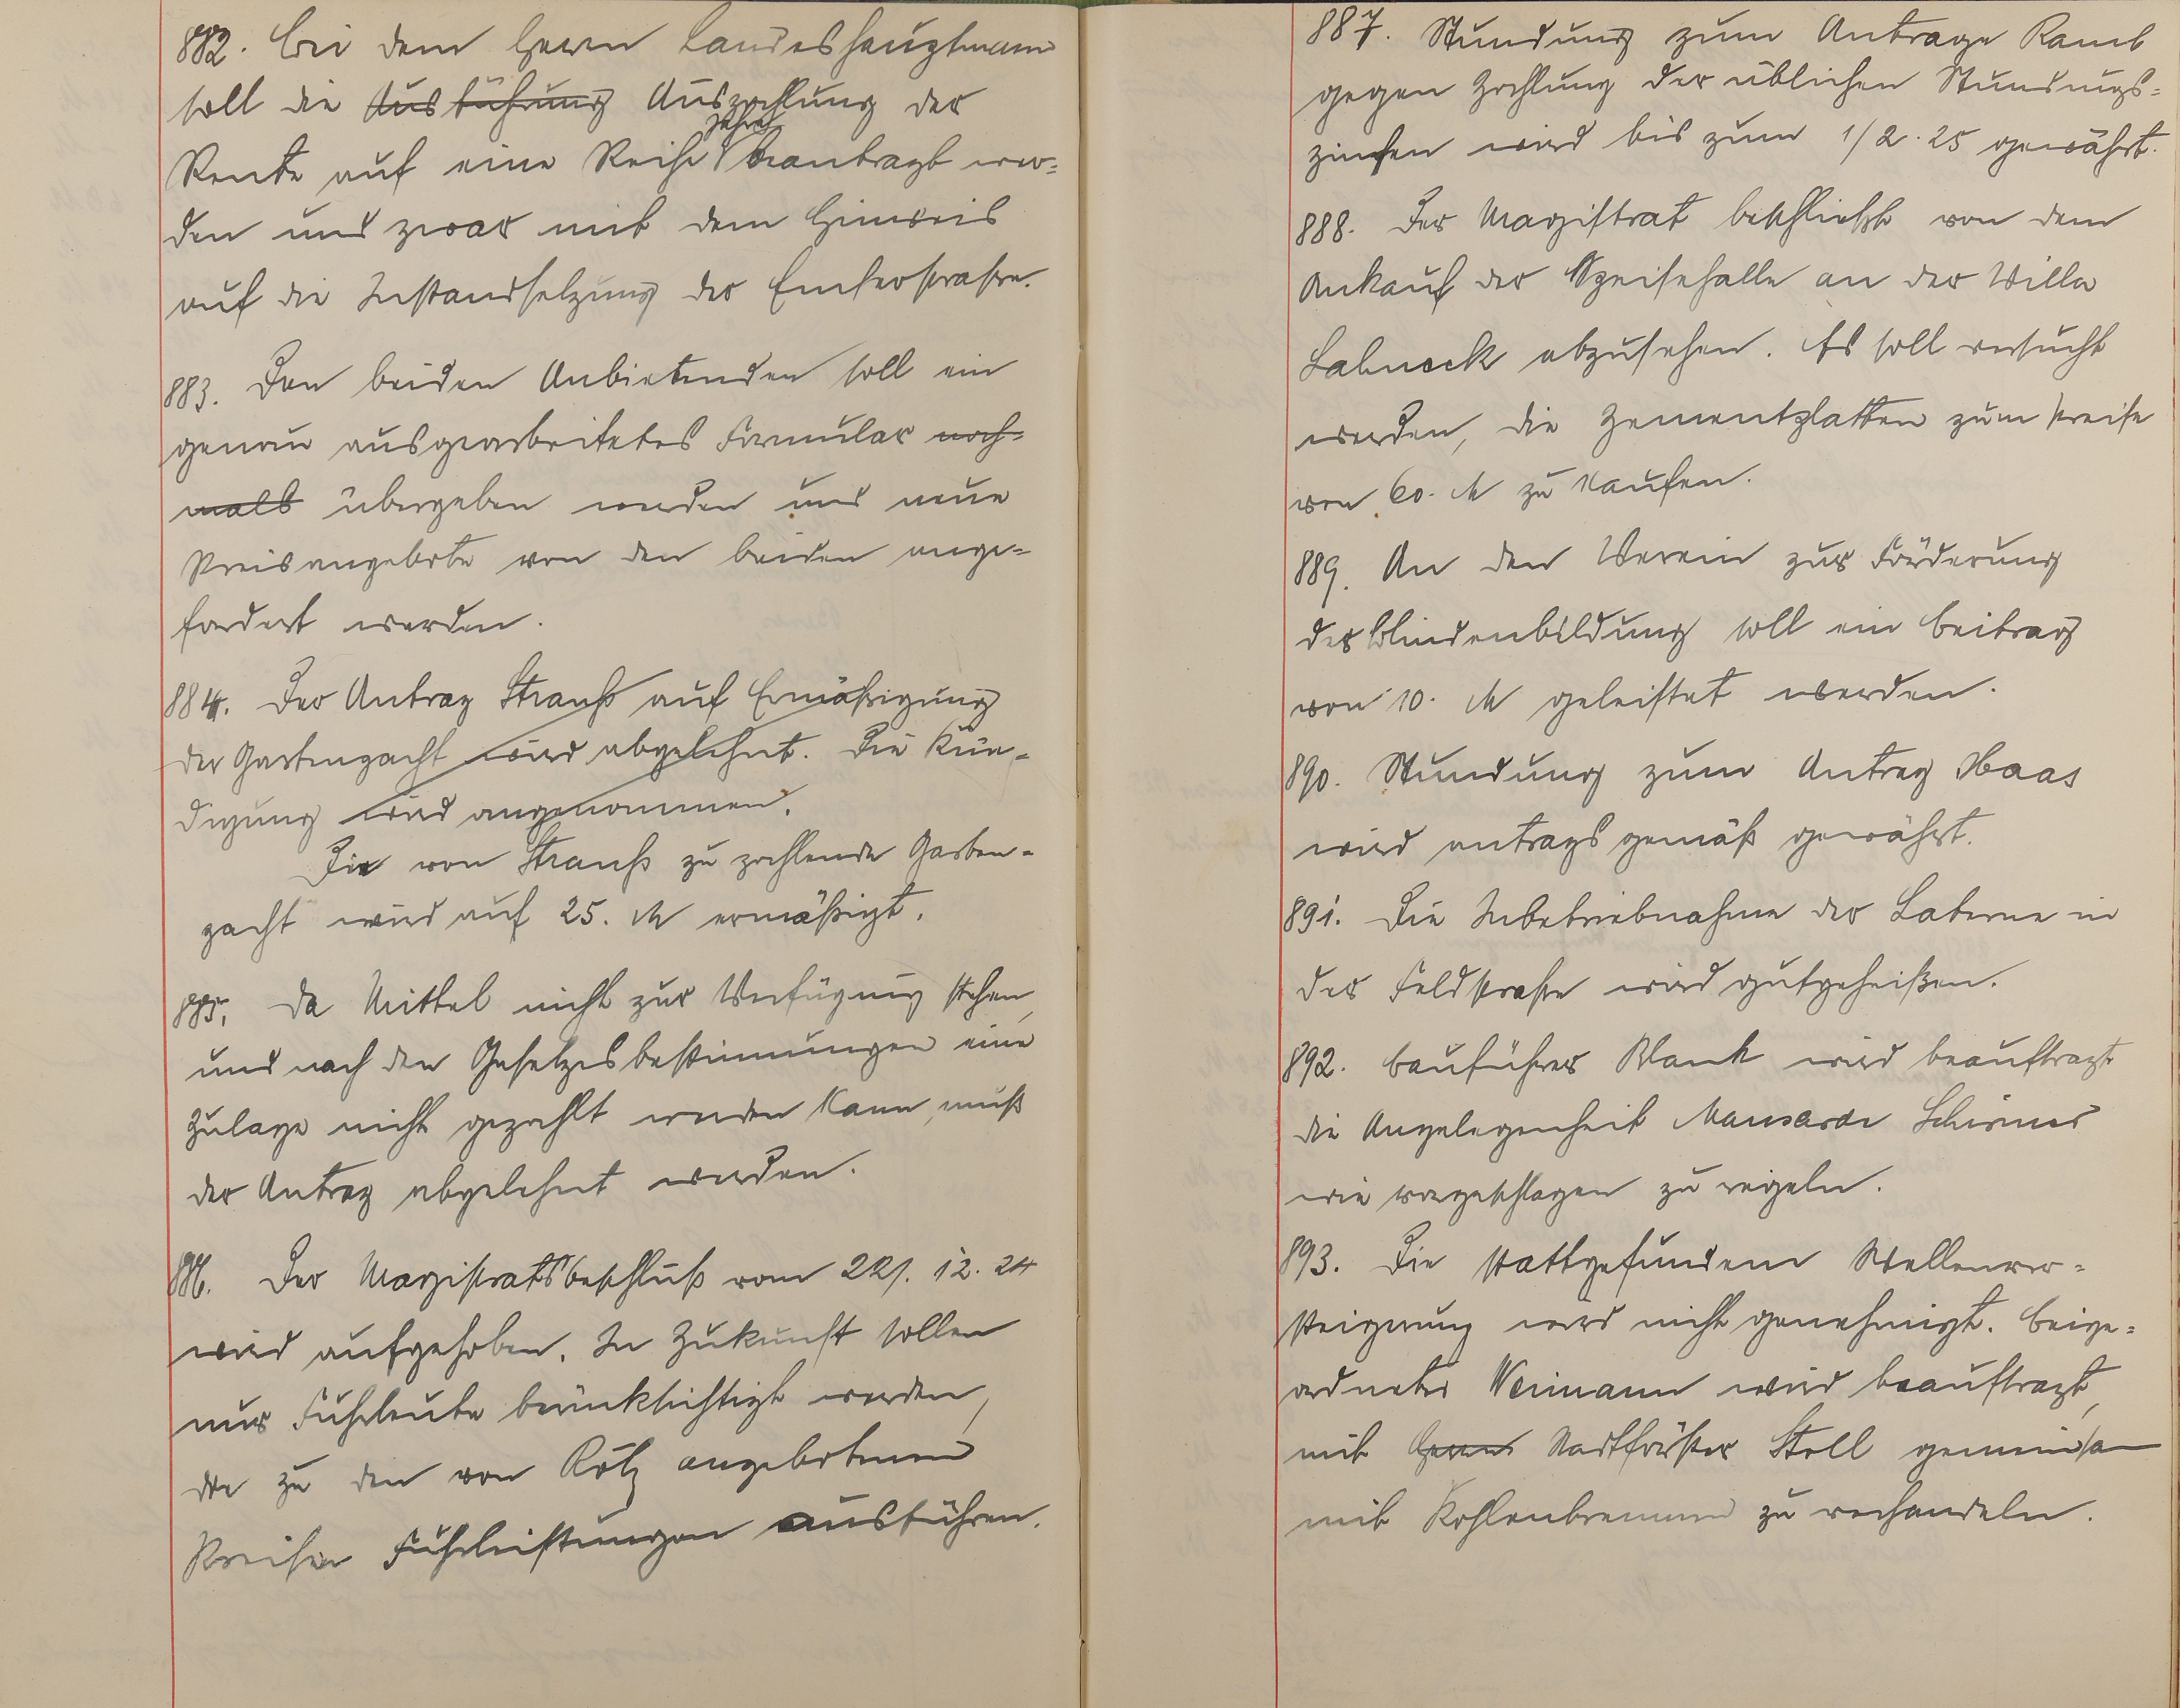 882. Bei dem Herrn Landeshauptmann
soll die Ausführung Auszahlung der
Rente auf eine Reihe Jahre beantragt wer=
den und zwar mit dem Hinweis
auf die Instandsetzung der Emserstraße.
883. Den beiden Anbietenden soll ein
genau ausgearbeitetes Formular noch=
mals übergeben werden und neue
Preisangebote von den beiden ange=
fordert werden.
884. Der Antrag Strauß auf Ermäßigung
der Gartenpacht wird abgelehnt. Die Kün=
digung wird angenommen.
Die von Strauß zu zahlende Garten=
pacht wird auf 25. M ermäßigt.
885. Da Mittel nicht zur Verfügung stehen,
und nach den Gesetzesbestimmungen eine
Zulage nicht gezahlt werden kann, muß
der Antrag abgelehnt werden.
886. Der Magistratsbeschluß vom 12. 24
wird aufgehoben. In Zukunft sollen
nur Fuhrleute berücksichtigt werden,
die zu den von angebotenen
Preisen Fuhrleistungen ausführen.
887. Stundung zum Antrage
gegen Zahlung der üblichen Stundungs=
zinsen wird bis zum 1/2. 25 gewährt.
888. Der Magistrat beschließt von dem
Ankauf der Speisehalle an der Villa
Lahneck abzusehen. Es soll versucht
werden, die Zementplatten zum Preise
von 60. M zu kaufen.
889. An den Verein zur Förderung
der Blindenbildung soll ein Beitrag
von 10. M geleistet werden.
890. Stundung zum Antrag Haas
wird antragsgemäß gewährt.
891. Die Inbetriebnahme der Laterne in
der Feldstraße wird gutgeheißen.
892. Bauführer Blank wird beauftragt
die Angelegenheit Mansarde Schirmer
wie vorgeschlagen zu regeln.
893. Die stattgefundene Wellenver=
steigerung wird nicht genehmigt. Beige=
ordneter Weimann wird beauftragt,
mit Herrn Stadtförster Stoll gemeinsam
mit Kohlenbrenner zu verhandeln.